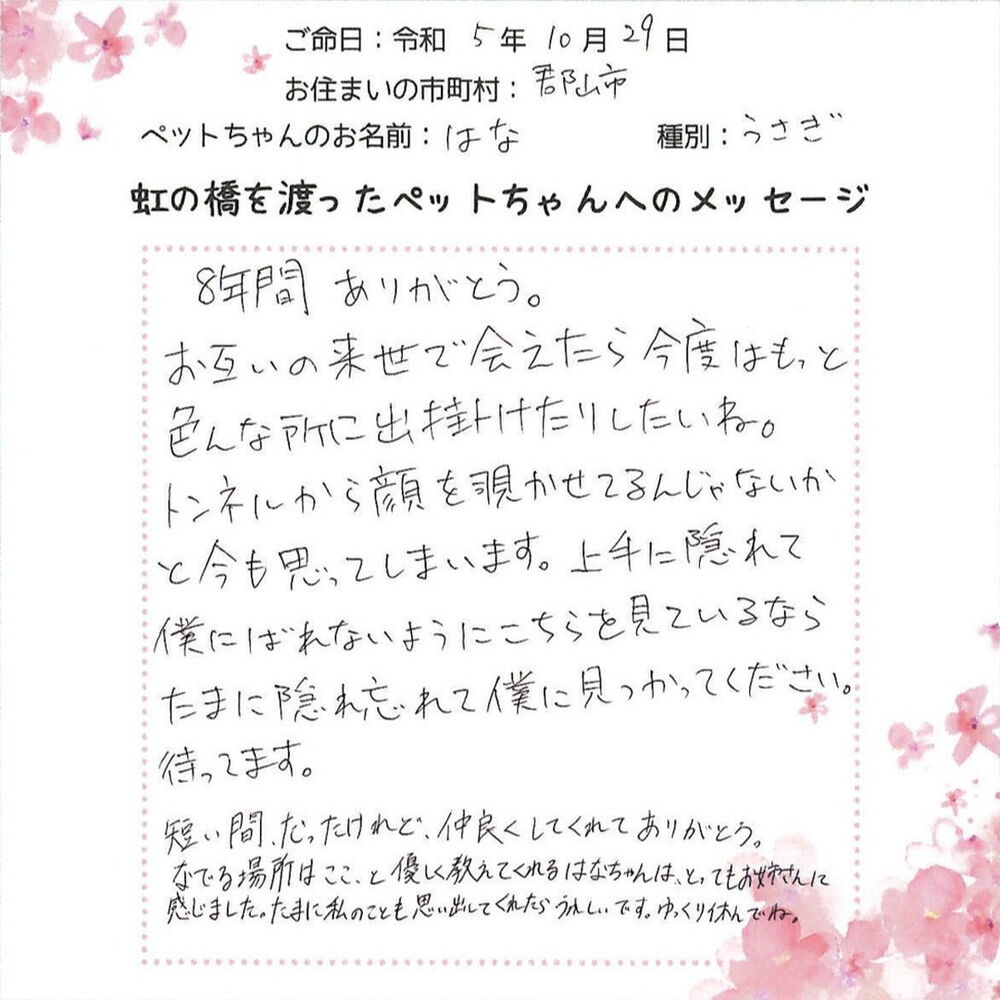 ご命日：令和 5年 10月 29日
お住まいの市町村：郡山市
ペットちゃんのお名前：はな 種別：うさぎ
虹の橋を渡ったペットちゃんへのメッセージ
8年間 ありがとう。
お互いの来世で会えたら今度はもっと
色んな所に出掛けたりしたいね。
トンネルから顔を覗かせてるんじゃないか
と今も思ってしまいます。上手に隠れて
僕にばれないようにこちらを見ているなら
たまに隠れ忘れて僕に見つかってください。
待ってます。
短い間、だったけれど、仲良くしてくれてありがとう。
なでる場所はここ、と優しく教えてくれるはなちゃんは、とってもお姉さんに
感じました。たまに私のことも思い出してくれたらうれしいです。ゆっくり休んでね。